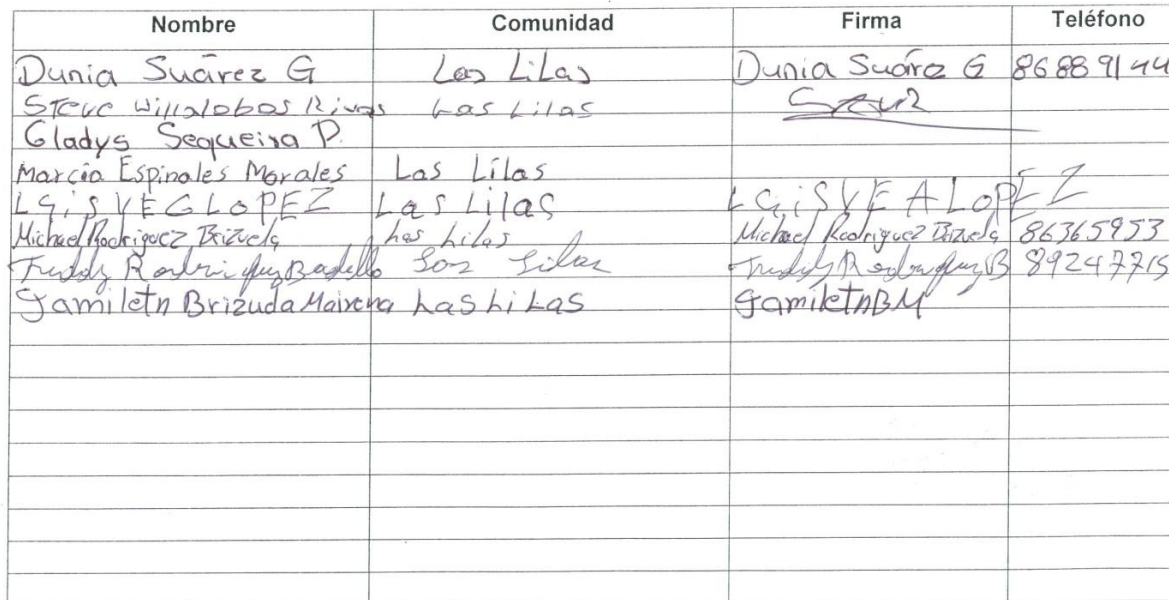 Nombre Comunidad Firma Teléfono
Dunia Suárez G Las Lilas Dunia Suárez G 86889144
Steve Willalobos Rivas Las Lilas
Gladys Sequeira P.
Marcia Espinales Morales Las Lilas
LGiS VEGLOPEZ Las Lilas LGiS VEALOPEZ
Michael Rodriguez Brizuela Las Lilas Michael Rodriguez Brizuela 86365953
Freddy Rodriguez Los Lilas Freddy Rodriguez B 89247715
Jamileth Brizuela Mairena Las Lilas Jamileth BM